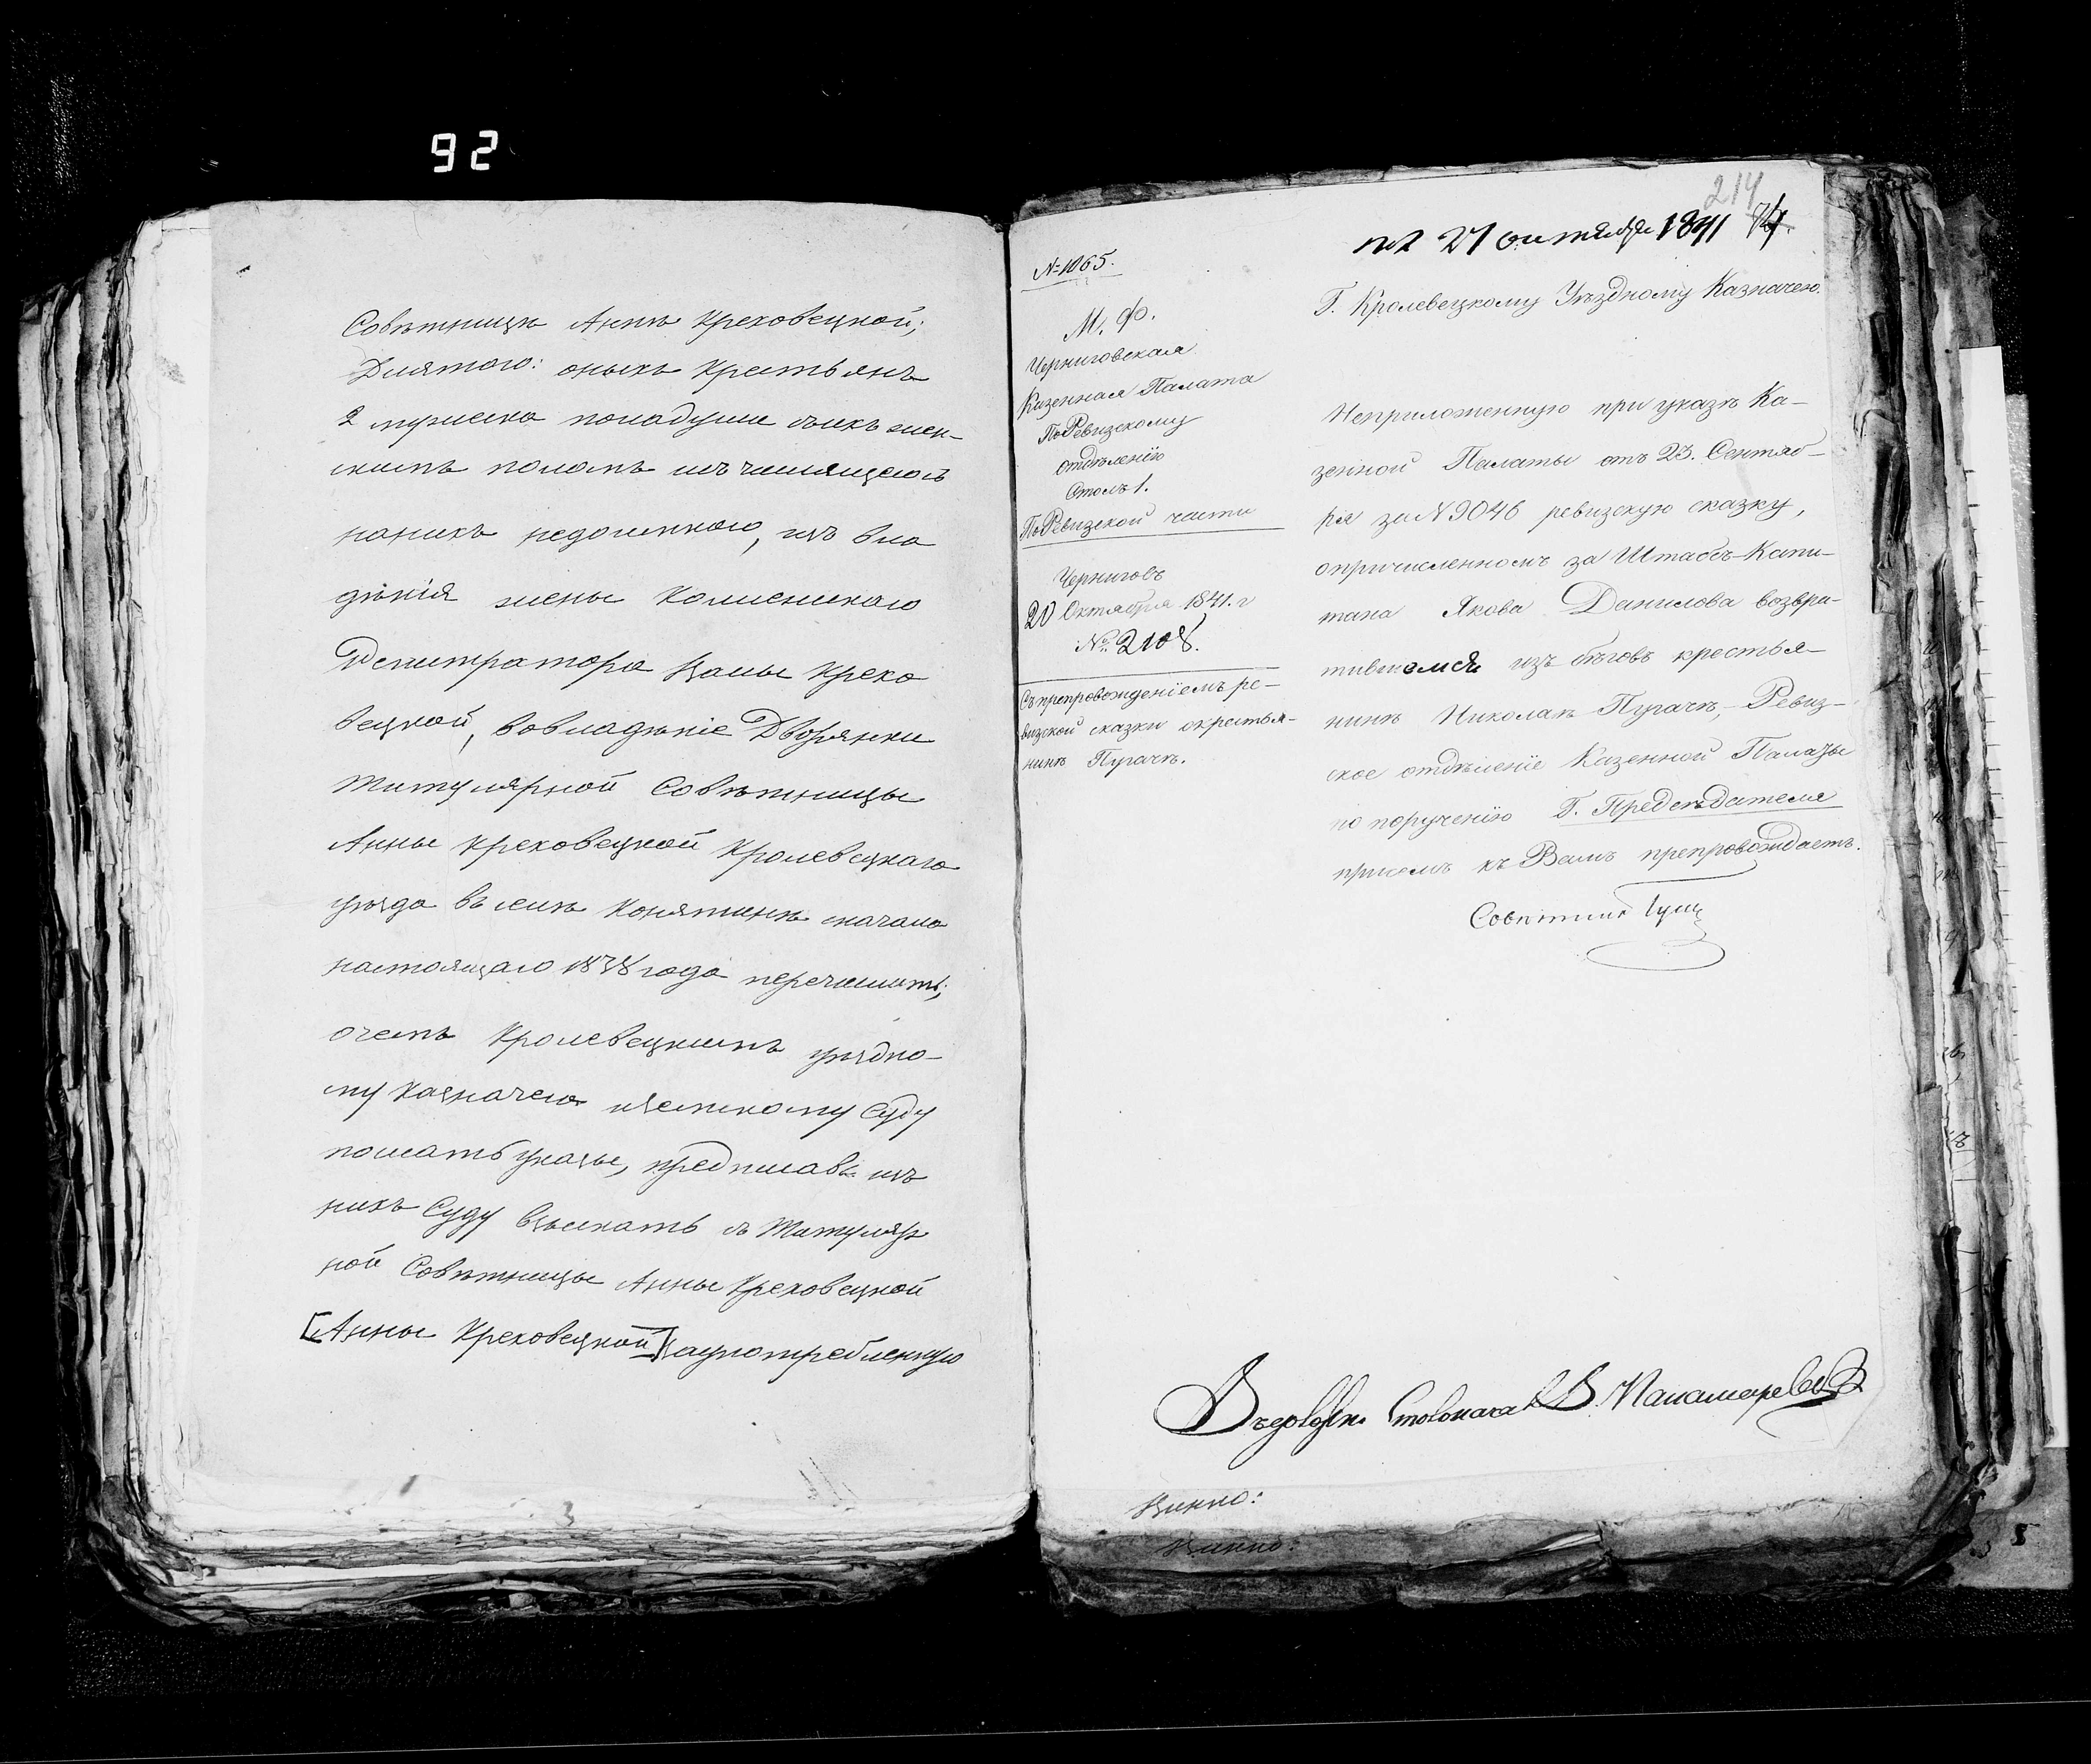 92
Совѣтницѣ Аннѣ Креховецкой;
Длятого: оныхъ крестьянъ
2 мужеска пола души съихъ жен-
скимъ поломъ изъ числящеюсь
наних недоимкою, изъ вла
дѣнія жены Колежскаго
Регистратора Крехо
вецкой, вовладѣніе Дворянки
Титулярной Совѣтницы
Анны Креховецкой Кролевецкаго
уѣзда въ селѣ Конятинѣ сначала
настоящаго 1838 года перечислить;
очемъ Кролевецкимъ уѣздно-
му казначею иземскому суду
послать указы, предписавъ изъ
нихъ Суду взыскать съ Титуляр
ной Совѣтницы Анны Креховецкой
[Анны Креховецкой] заупотребленную
214
пол 27 октября 1841
№ 1065.
М. Ф.
Черниговская
Казенная Палата
По Ревизскому
отдѣленію
Столъ 1.
По Ревизской части
Черниговъ
20 Октября 1841. г
№ 2108.
Съ препровожденіемъ ре-
визской сказки окрестья-
нинѣ Пугачѣ.
Г. Кролевецкому Уѣздному Казначею.
Неприложенную при указѣ Ка-
зенной Палаты отъ 23. Сентяб-
ря за N 9046 ревизскую сказку,
опричисленномъ за Штабсъ-Капи-
тана Якова Данилова возвра-
тившемся изъ бѣговъ крестья-
нинѣ Николаѣ Пугачѣ,- Ревиз-
ское отдѣленіе Казенной Палаты
по порученію Г. Предсѣдателя
присемъ къ Вамъ препровождаетъ.
Совѣтник
Столоначал